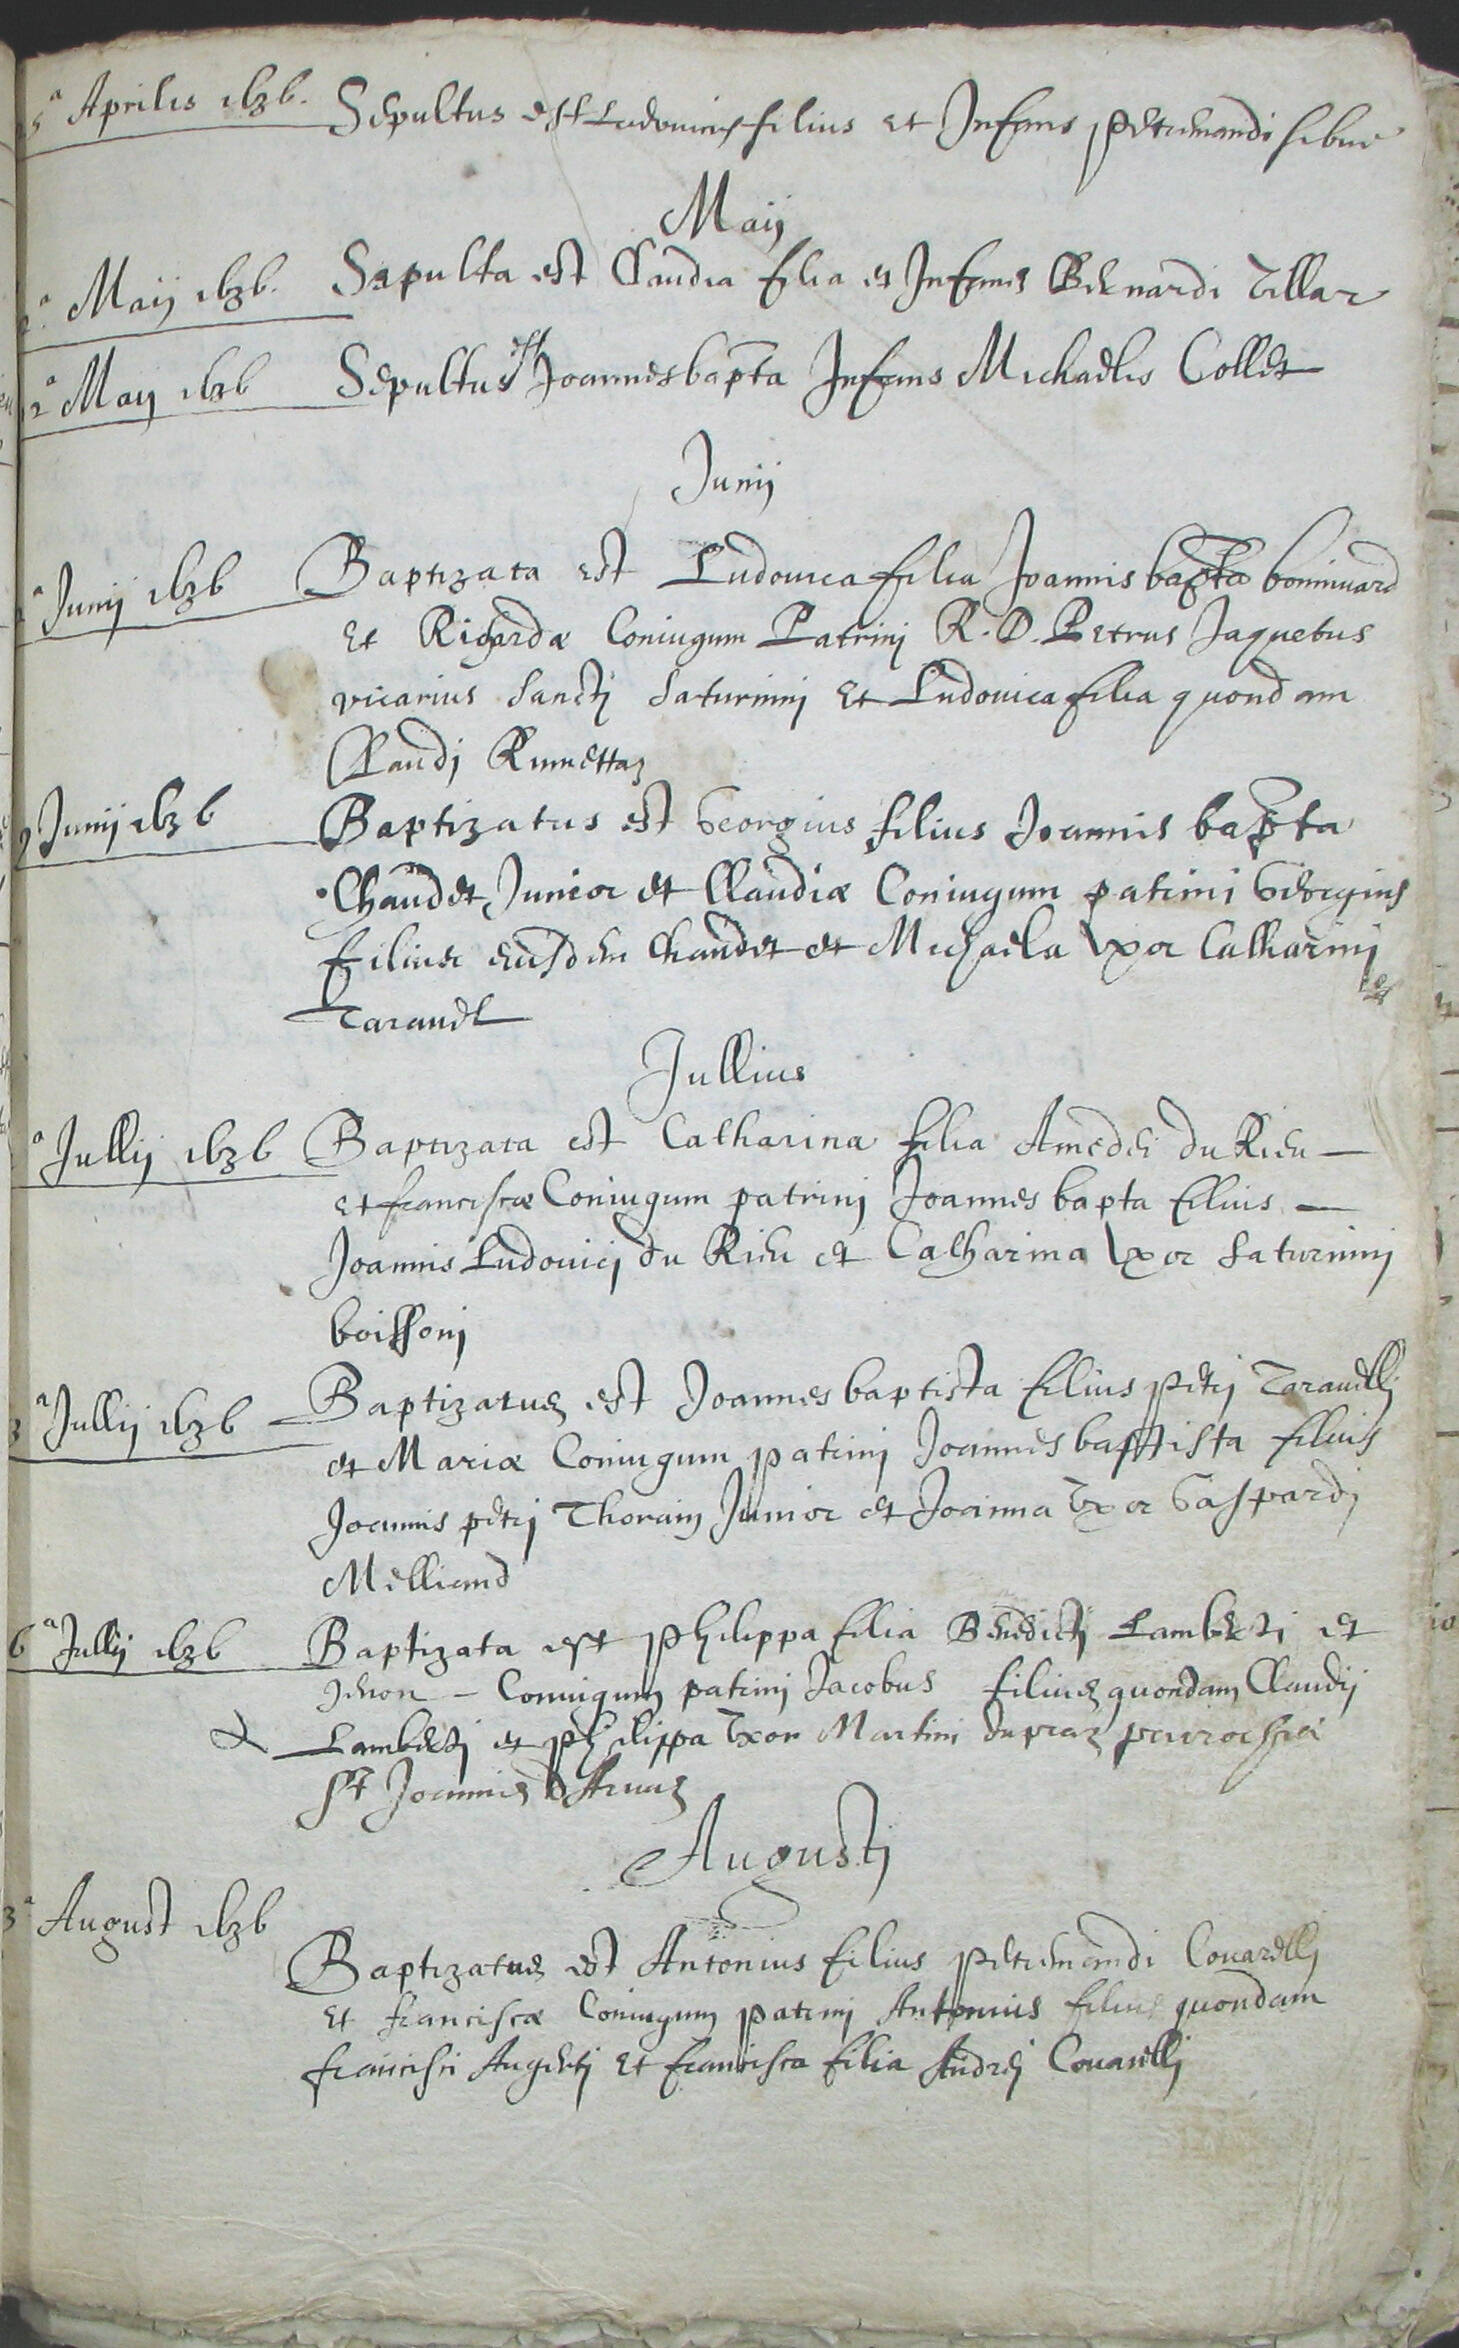 5ª Aprilis 1636. Sepultus est Ludovicus filius et Infans Petremandi
Maij
ª Maij 1636. Sepulta est Claudia filia et Infans Bernardi Villar
2ª Maij 1636 Sepultus est Joannesbapta Infans Michaelis Collet
Junij
ª Junij 1636 Baptizata est Ludovica filia Joannis bapta bonivard
et Richardæ Coniugum Patrinj R. D. Petrus Jaquetus
vicarius Sanctj Saturninj et Ludovica filia quondam
Claudj
9 Junij 1636 Baptizatus est Georgius filius Joannis bapta
Chaudet Junior et Claudiæ Coniugum patrini Georgius
filius eiusdem Chaudet et Michaela Vxor Catharinj
Taraudel
Jullius
ª Jullij 1636 Baptizata est Catharina filia Amedei du Rieu —
et franciscæ Coniugum patrinj Joannes bapta filius —
Joannis Ludovicj du Rieu et Catharina Vxor Saturninj
boissonj
3ª Jullij 1636 Baptizatus est Joannes baptista filius petrj Taraudellj
et Mariæ Coniugum patrinj Joannes baptista filius
Joannis petrj Thorain Junior et Joanna Vxor Gaspardj
Melliand
6ª Jullij 1636 Baptizata est Philippa filia Benedictj Lambertj et
— Coniugum patrinj Jacobus filius quondam Claudij
Lambertj et Philippa Vxor Martini dupraz parrochiæ
St Joannis d Arvaz
Augustj
3ª August 1636
Baptizatus est Antonius filius petremandi Covarellj
et franciscæ Coniugum patrinj Antonius filius quondam
francisci Augertj et francisca filia Andrej Covarellj